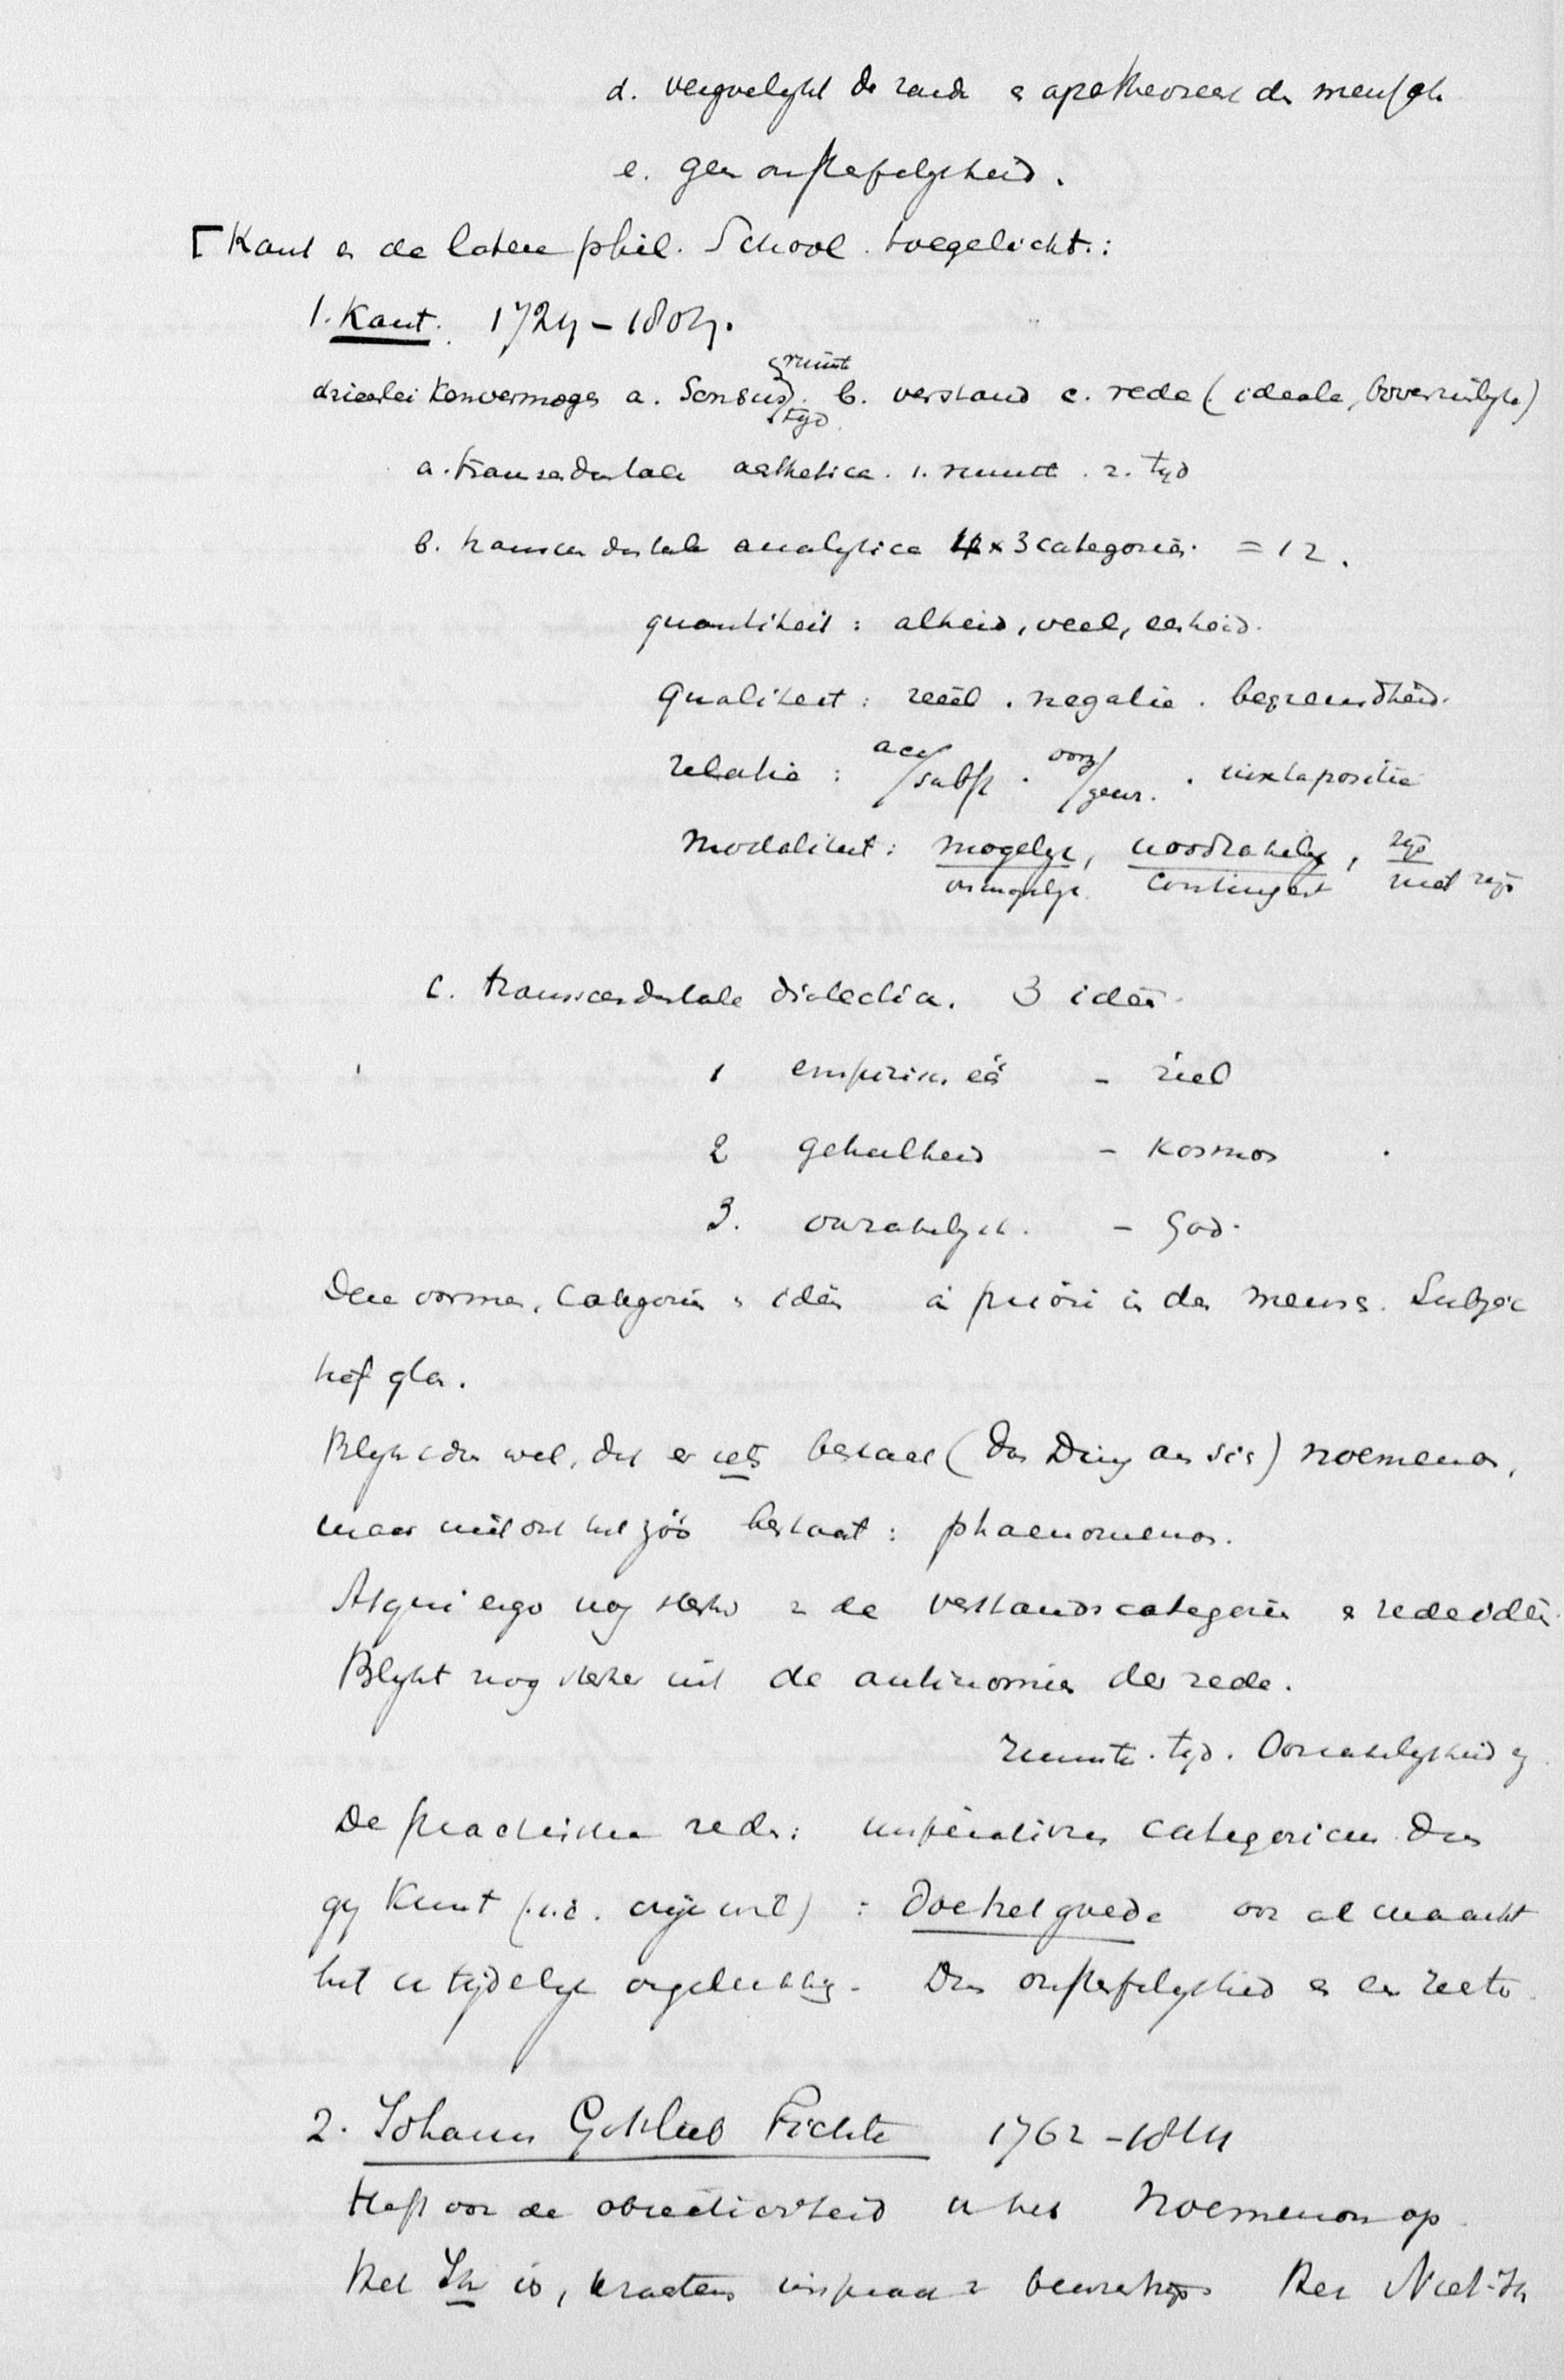 d. vergoelykt de zonde & apotheoseert de mensch
e. geen onsterfelykheid.
[Kant & de latere phil. School toegelicht:
1. Kant. 1724-1804.
ruimte
drieerlei kenvermogen a. Sensus. b. verstand c. rede (ideale, bovenzinlyke)
tyd
a. transcendentale aesthetica. 1. ruimte. 2. tyd
b. transcendentale analytica 4 x 3 categorieën. = 12.
quantiteit: alheid, veel, eenheid.
qualiteit: reëel. negatie. begrensdheid.
relatie: acc/subst. oorz/gevr. iuxtapositie
Modaliteit: mogelyk, noodzakelyk, zyn
onmogelyk. contingent niet zyn
c. transcendentale dialectica. 3 ideën.
1 empirisch - ziel
2 geheelheid - kosmos
3. oorzakelyk. - God.
Deze vormen, categorieën & ideën à priori in den mensch. Subjec
tief
Blykt dus wel, dat er iets bestaat (Das Ding an sich) noemenon,
maar niet dat het zóó bestaat: phaenomenon.
Atqui ergo nog sterker de verstandscategorieën & redeideën.
Blykt nog sterker uit de antinomieën der rede.
ruimte. tyd. Oorzakelykheid
De practische rede: imperativus categoricus. Dus
gy kunt (i.e. vrije wil): doe het goede
het tijdelyk ongelukkig. Dus onsterfelykheid &
2. Johann Gottlieb Fichte 1762-1814
Heft voor de objectiviteit het Noemenon op.
Het Ik is, krachtens bewustzyn Het Niet-Ik